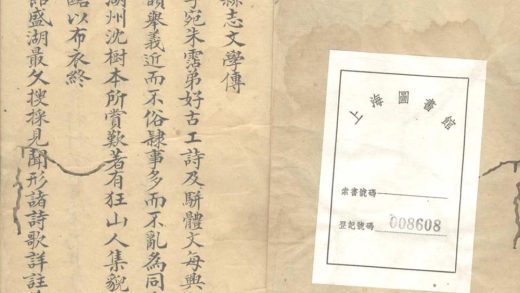 上海圖書館
索書號碼
登記號碼 008608
縣志文學傳
宛朱霑弟好古工詩及駢體文每與
舉義近而不俗隸事多而不亂為同
湖州沈樹本所賞歎著有狂山人集貌
以布衣終
盛湖最久搜採見聞形諸詩歌詳註